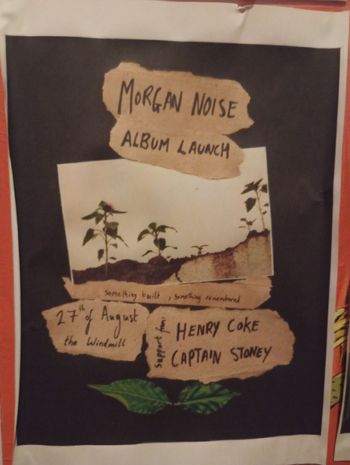 MORGAN NOISE
ALBUM LAUNCH
something built, something remembered
27th of August
the Windmill
support from:
HENRY COKE
CAPTAIN STONEY